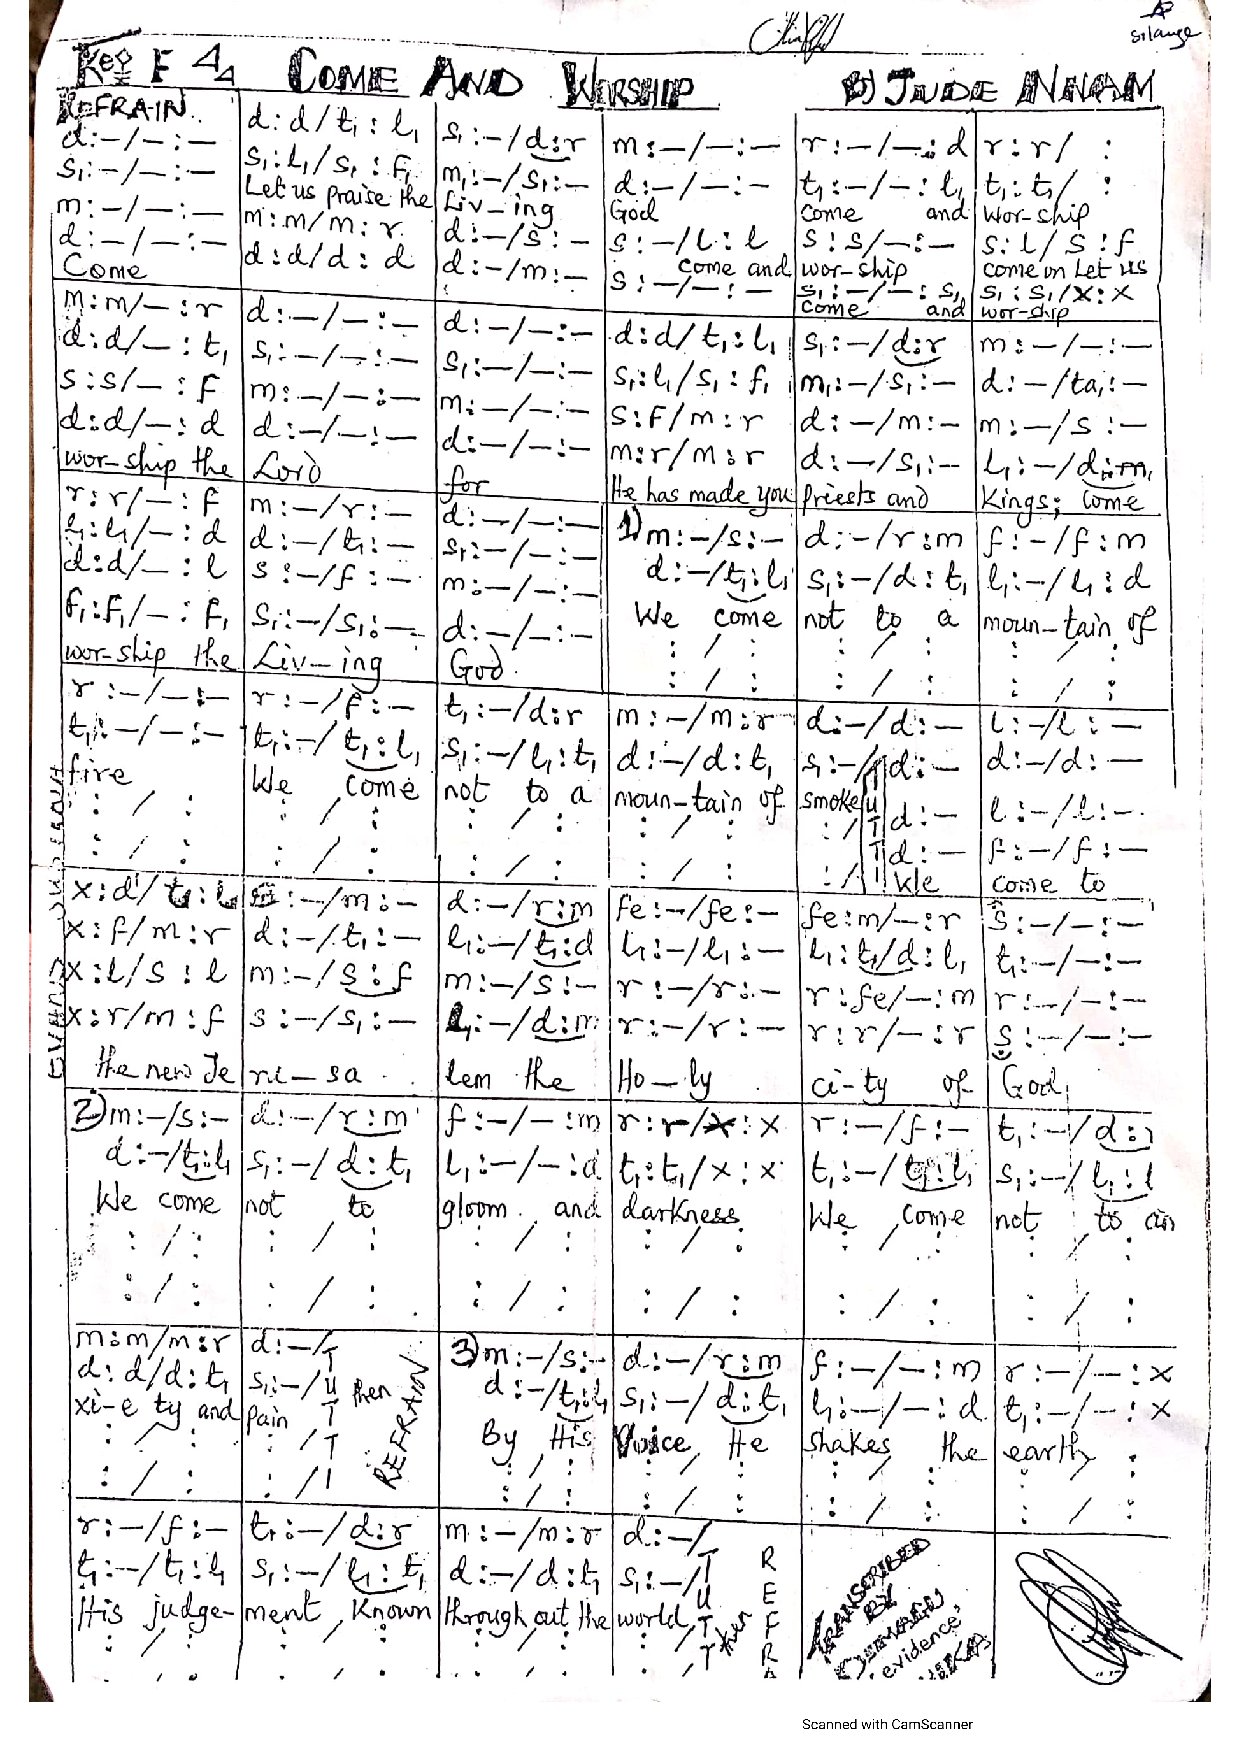 silange
Key F 4/4 COME AND WORSHIP By JUDE NNAM
REFRAIN
d:–/–:–
s₁:–/–:–
m:–/–:–
d:–/–:–
Come
d:d/t₁:l₁
s₁:l₁/s₁:f₁
Let us praise the
m:m/m:r
d:d/d:d
s₁:–/d:r
m₁:–/s₁:–
Liv–ing
d:–/s:–
d:–/m:–
m:–/–:–
d:–/–:–
God
s:–/l:l
come and
s:–/–:–
r:–/–:d
t₁:–/–:l₁
come and
s:s/–:–
wor-ship
s₁:–/–:s₁
come and
r:r/ :
t₁:t₁/ :
wor-ship
s:l/s:f
come on let us
s₁:s₁/x:x
wor-ship
m:m/–:r
d:d/–:t₁
s:s/–:f
d:d/–:d
wor-ship the
d:–/–:–
s₁:–/–:–
m:–/–:–
d:–/–:–
Lord
d:–/–:–
s₁:–/–:–
m:–/–:–
d:–/–:–
for
d:d/t₁:l₁
s₁:l₁/s₁:f₁
s:f/m:r
m:r/m:r
He has made you
s₁:–/d:r
m₁:–/s₁:–
d:–/m:–
d:–/s₁:–
priests and
m:–/–:–
d:–/ta₁:–
m:–/s:–
l₁:–/d:m₁
Kings; come
r:r/–:f
l₁:l₁/–:d
d:d/–:l
f₁:f₁/–:f₁
wor-ship the
m:–/r:–
d:–/t₁:–
s:–/f:–
s₁:–/s₁:–
Liv–ing
d:–/–:–
s₁:–/–:–
m:–/–:–
d:–/–:–
God.
1) m:–/s:–
d:–/t₁:l₁
We come
: / :
: / :
d:–/r:m
s₁:–/d:t₁
not to a
: / :
: / :
f:–/f:m
l₁:–/l₁:d
moun-tain of
: / :
: / :
r:–/–:–
t₁:–/–:–
fire
: / :
: / :
r:–/f:–
t₁:–/t₁:l₁
We come
: / :
: / :
t₁:–/d:r
s₁:–/l₁:t₁
not to a
: / :
: / :
m:–/m:r
d:–/d:t₁
moun-tain of
: / :
: / :
d:–/d:–
s₁:–/TUTTI d:–
smoke d:–
: / d:–
: / We
l:–/l:–
d:–/d:–
l:–/l:–
f:–/f:–
come to
x:d'/t:l
x:f/m:r
x:l/s:l
x:r/m:f
the new Je
:–/m:–
d:–/t₁:–
m:–/s:f
s:–/s₁:–
ru–sa
d:–/r:m
l₁:–/t₁:d
m:–/s:–
l₁:–/d:m
lem the
fe:–/fe:–
l₁:–/l₁:–
r:–/r:–
r:–/r:–
Ho–ly
fe:m/–:r
l₁:t₁/d:l₁
r:fe/–:m
r:r/–:r
ci-ty of
s:–/–:–
t₁:–/–:–
r:–/–:–
s:–/–:–
God,
2) m:–/s:–
d:–/t₁:l₁
We come
: / :
: / :
d:–/r:m
s₁:–/d:t₁
not to
: / :
: / :
f:–/–:m
l₁:–/–:d
gloom and
: / :
: / :
r:r/x:x
t₁:t₁/x:x
darkness
: / :
: / :
r:–/f:–
t₁:–/t₁:l₁
We come
: / :
: / :
t₁:–/d:r
s₁:–/l₁:l
not to an
: / :
: / :
m:m/m:r
d:d/d:t₁
xi-e ty and
: / :
: / :
d:–/
s₁:–/
pain
: /
: /
TUTTI
then
REFRAIN
3) m:–/s:–
d:–/t₁:l₁
By His
: / :
: / :
d:–/r:m
s₁:–/d:t₁
Voice, He
: / :
: / :
f:–/–:m
l₁:–/–:d
shakes the
: / :
: / :
r:–/–:x
t₁:–/–:x
earth,
: / :
: / :
r:–/f:–
t₁:–/t₁:l₁
His judge-
: / :
: / :
t₁:–/d:r
s₁:–/l₁:t₁
ment, Known
: / :
: / :
m:–/m:r
d:–/d:t₁
through out the
: / :
: / :
d:–/
s₁:–/
world,
: /
: /
TUTT
then
REFRA
TRANSCRIBED
BY
evidence,
Scanned with CamScanner